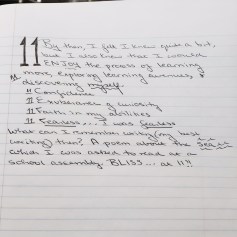 11 By then, I felt I knew quite a bit,
but I also knew that I would
ENJOY the process of learning
11 more, exploring learning avenues, &
discovering myself.
11 Confidence
11 Exuberance of curiosity
11 Faith in my abilities
11 Fearless... I was fearless
What can I remember writing (my best
writing) then? A poem about the sea
which I was asked to read at a
school assembly. BLISS... at 11!!